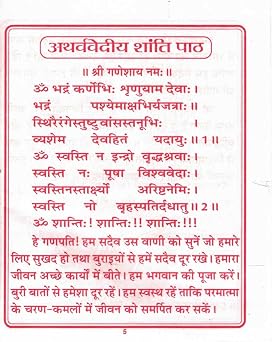 अथर्ववेदीय शांति पाठ
॥ श्री गणेशाय नमः ॥
ॐ भद्रं कर्णेभिः श्रृणुयाम देवाः ।
भद्रं पश्येमाक्षभिर्यजत्राः ।
स्थिरैरंगेस्तुष्टुवांसस्तनूभिः ।
व्यशेम देवहितं यदायुः ॥ 1 ॥
ॐ स्वस्ति न इन्द्रो वृद्धश्रवाः ।
स्वस्ति नः पूषा विश्ववेदाः ।
स्वस्तिनस्तार्क्ष्यो अरिष्टनेमिः ।
स्वस्ति नो बृहस्पतिर्दधातु ॥ 2 ॥
ॐ शान्तिः! शान्तिः!! शान्तिः!!!
हे गणपति! हम सदैव उस वाणी को सुनें जो हमारे
लिए सुखद हो तथा बुराइयों से हमें सदैव दूर रखे। हमारा
जीवन अच्छे कार्यो में बीते। हम भगवान की पूजा करें।
बुरी बातों से हमेशा दूर रहें। हम स्वस्थ रहें ताकि परमात्मा
के चरण-कमलों में जीवन को समर्पित कर सकें।
5